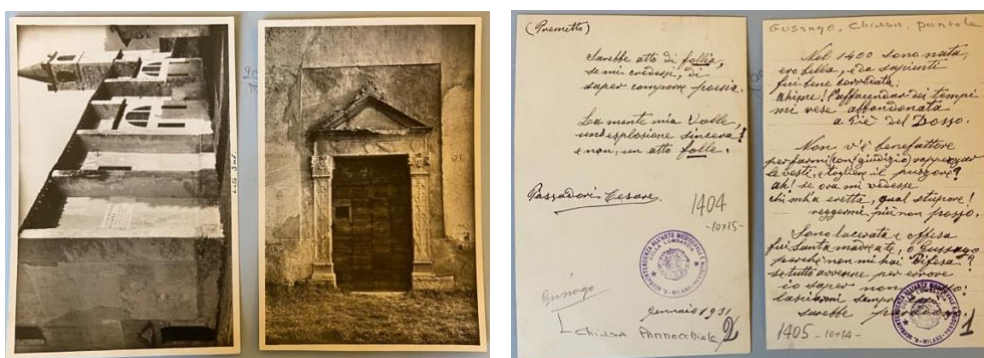 (Premetto)
Sarebbe atto di follia,
se mi credessi, di
saper comporre poesia.
La mente mia volle,
un'esplosione sincera!
e non, un atto folle.
Passadori Cesare.
1404
-10x15-
Gussago
Gennaio 1931
Chiesa Parrocchiale
2
Gussago, Chiesa, portale
Nel 1400 sono nata,
ero bella, e da sapienti
fui bene corredata,
ahimè! l'affaccendar dei tempi
mi rese abbandonata
a Piè del Dosso.
Non v'è benefattore
per farmi (con giudizio) rappezzar
le vesti, e togliermi il
ah! se ora mi vedesse
chi mi ha eretta, qual stupore!
reggermi più non posso.
Sono lacerata e offesa
fui Santa madre a te, o Gussago
perchè non mi hai difesa?
se tutto avvenne per errore
io saper non
lasciarmi
sarebbe
1405 -10x14-
1